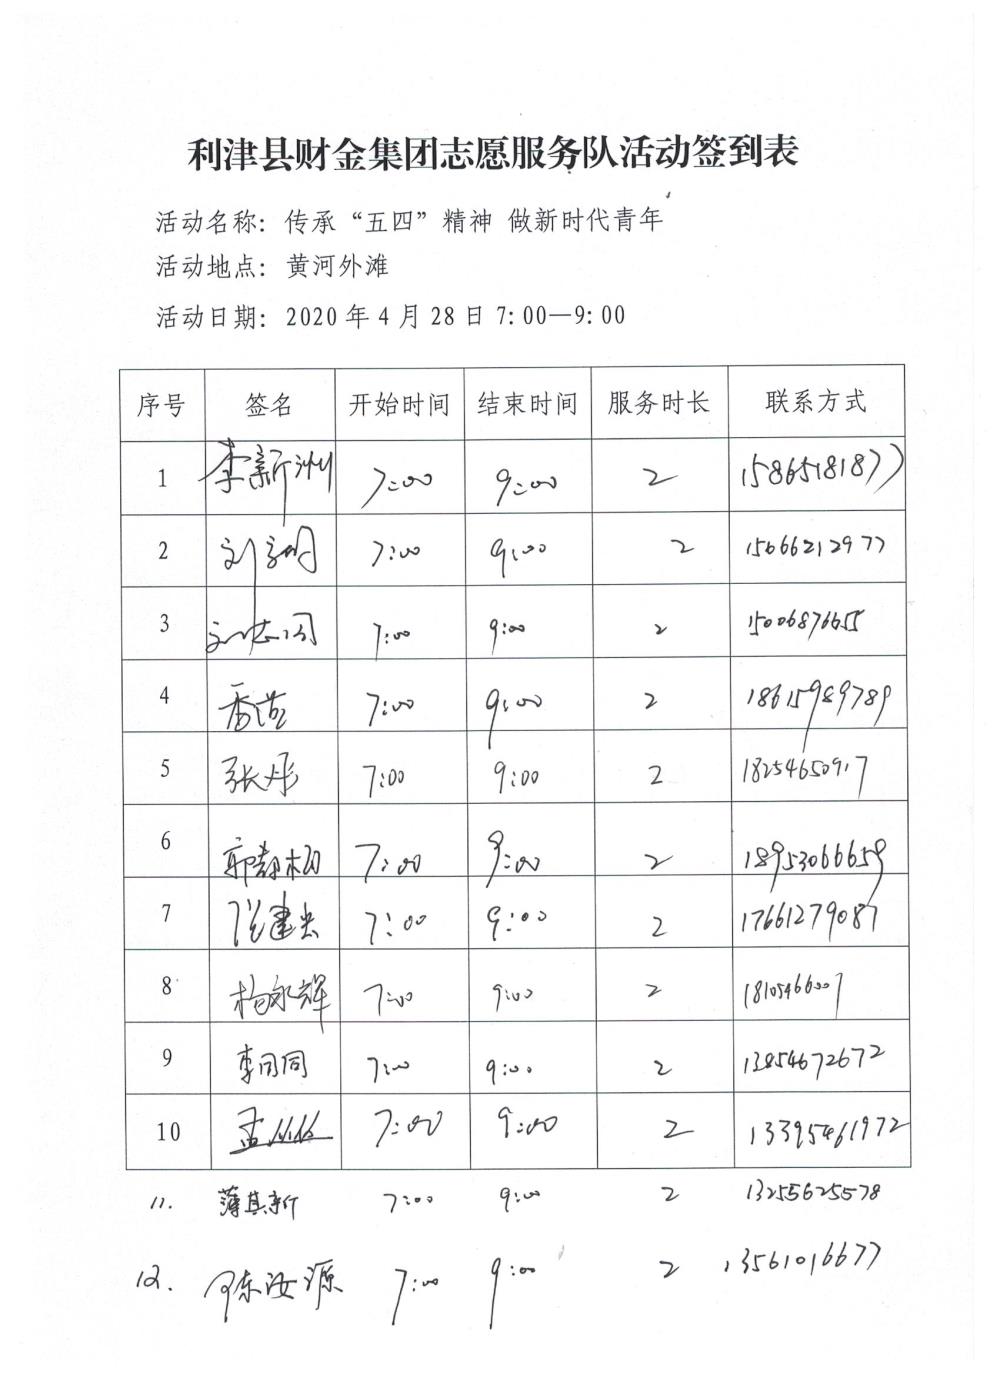 利津县财金集团志愿服务队活动签到表
活动名称：传承“五四”精神 做新时代青年
活动地点：黄河外滩
活动日期：2020年4月28日7:00—9:00
序号 签名 开始时间 结束时间 服务时长 联系方式
1 李新洲 7:00 9:00 2 15865181877
2 刘 7:00 9:00 2 15066212977
3 刘志 7:00 9:00 2 15006876655
4 7:00 9:00 2 18615989789
5 张彤 7:00 9:00 2 18254650917
6 郭 7:00 9:00 2 18953066659
7 7:00 9:00 2 17661279087
8 杨永辉 7:00 9:00 2 18105466007
9 李同同 7:00 9:00 2 13854672672
10 孟 7:00 9:00 2 13395461972
11. 薄其新 7:00 9:00 2 13255625578
12. 陈汝源 7:00 9:00 2 13561016677